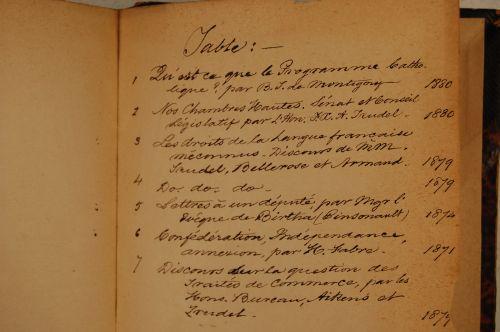 Table: —
1 Qu'est ce que le Programme Catho-
lique? par B. T. de Montigny 1880
2 Nos Chambres Hautes. Sénat et Conseil
Législatif par L'Hon. F.X.A. Trudel. 1880
3 Les droits de la langue française
méconnus. Discours de MM.
Trudel, Bellerose et Armand. 1879
4 Do. do. do. 1879
5 Lettres à un député, par Mgr l'
Evêque de Birtha (Pinsonault) 1874
6 Confédération, Indépendance,
annexion, par H. Fabre. 1871
7 Discours sur la question des
Traités de Commerce, par les
Hons. Bureau, Aikens et
Trudel. 1879